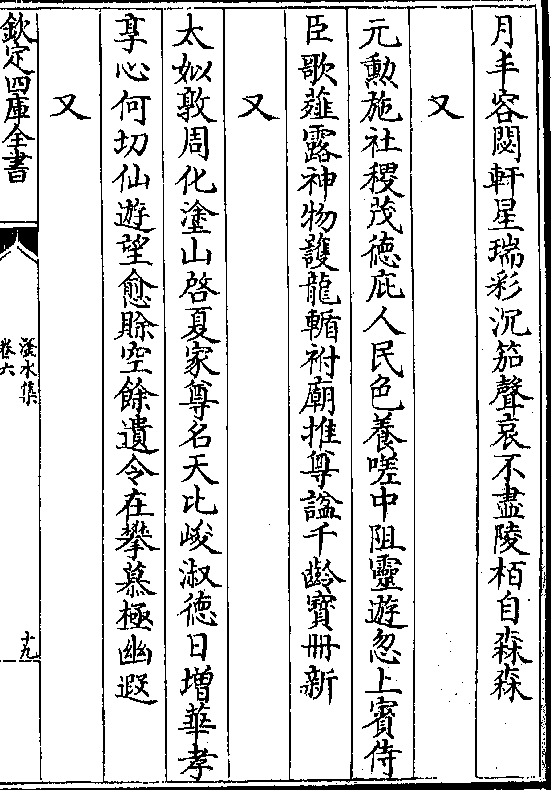 月丰容閟軒星瑞彩沉笳聲哀不盡陵栢自森森
又
元勲施社稷茂徳庇人民色養嗟中阻靈遊忽上賓侍
臣歌薤露神物護龍輴祔廟推尊諡千齡寳冊新
又
太姒敦周化塗山啓夏家尊名天比峻淑徳日增華孝
享心何切仙遊望愈賖空餘遺令在攀慕極幽遐
又
欽定四庫全書
潞水集
卷六
十九